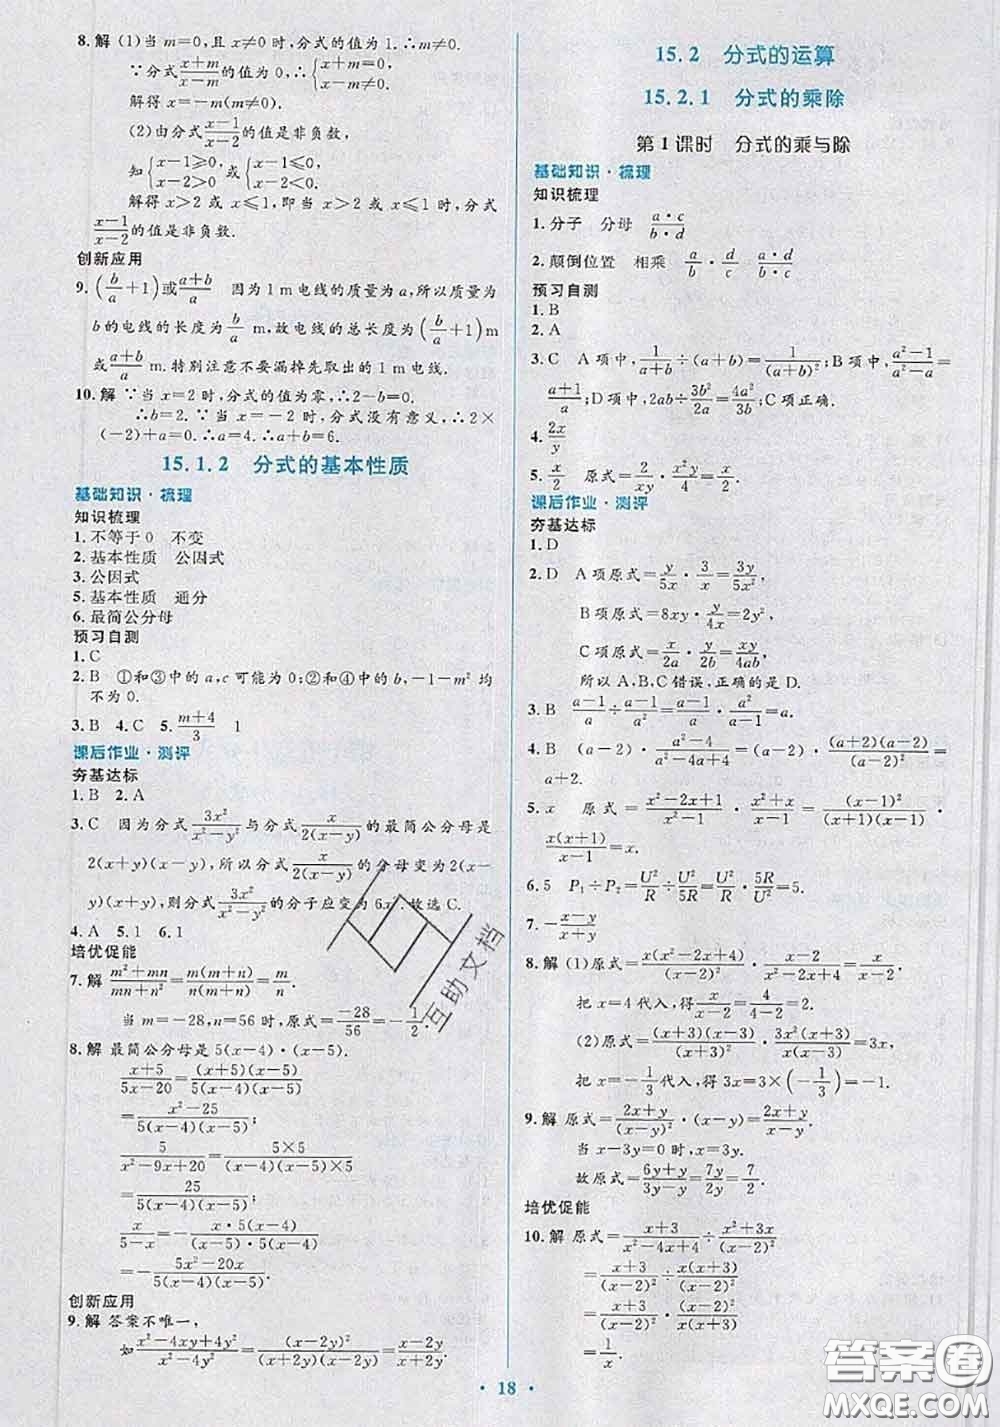 8.解 (1)当 m=0,且 x≠0 时,分式的值为 1.∴m=0.
∵分式(x+m)/(x-m)的值为 0,∴{x+m=0, x-m≠0.
解得 x=-m(m≠0).
(2)由分式(x-1)/(x-2)的值是非负数,
知{x-1≥0, x-2>0 或{x-1≤0, x-2<0.
解得 x>2 或 x≤1,即当 x>2 或 x≤1 时,分式
(x-1)/(x-2)的值是非负数.
创新应用
9.(b/a+1)或(a+b)/a 因为 1 m 电线的质量为 a,所以质量为
b 的电线的长度为 b/a m,故电线的总长度为(b/a+1)m
或(a+b)/a m.特别注意不要漏掉先取出的 1 m 电线.
10.解 ∵当 x=2 时,分式的值为零,∴2-b=0.
∴b=2.∵当 x=-2 时,分式没有意义,∴2×
(-2)+a=0.∴a=4.∴a+b=6.
15.1.2 分式的基本性质
基础知识·梳理
知识梳理
1.不等于 0 不变
2.基本性质 公因式
3.公因式
5.基本性质 通分
6.最简公分母
预习自测
1.C
2.B ①和③中的 a,c 可能为 0;②和④中的 b,-1-m² 均
不为 0.
3.B 4.C 5.(m+4)/3 1
课后作业·测评
夯基达标
1.B 2.A
3.C 因为分式 3x²/(x²-y²) 与分式 x/(2(x-y)) 的最简公分母是
2(x+y)(x-y),所以分式 x/(2(x-y)) 的分母变为 2(x-
y)(x+y),则分式 3x²/(x²-y²) 的分子应变为 6x².故选 C.
4.A 5.1 6.1
培优促能
7.解 (m²+mn)/(mn+n²)=m(m+n)/n(m+n)=m/n.
当 m=-28,n=56 时,原式=-28/56=-1/2.
8.解 最简公分母是 5(x-4)·(x-5).
(x+5)/(5x-20)=(x+5)(x-5)/5(x-4)(x-5)
=(x²-25)/5(x-4)(x-5);
5/(x²-9x+20)=5×5/(x-4)(x-5)×5
=25/5(x-4)(x-5);
x/(5-x)=-x·5(x-4)/5(x-4)(x-5)
=-(5x²-20x)/5(x-4)(x-5).
创新应用
9.解 答案不唯一,
如(x²-4xy+4y²)/(x²-4y²)=(x-2y)²/(x+2y)(x-2y)=(x-2y)/(x+2y).
15.2 分式的运算
15.2.1 分式的乘除
第 1 课时 分式的乘与除
基础知识·梳理
知识梳理
1.分子 分母 (a·c)/(b·d)
2.颠倒位置 相乘 a/b·d/c (a·d)/(b·c)
预习自测
1.B
2.A
3.C A 项中,1/a÷(a+b)=1/(a(a+b));B 项中,(a²-1)/a÷
(a+1)/a;D 项中,2ab÷3b²/2a=4a²/3b;C 项正确.
4.2x/y
5.x/2 原式=2/xy·x²y/4=x/2.
课后作业·测评
夯基达标
1.D
2.D A 项原式=y/5x·3/x=3y/5x²,
B 项原式=8xy·y/4x=2y²,
C 项原式=x/2a·y/2b=xy/4ab,
所以 A、B、C 错误,正确的是 D.
3.B (a-1)/a÷(a-1)/a²=(a-1)/a·a²/(a-1)=a.
4.B (a-2)·(a²-4)/(a²-4a+4)=(a-2)·(a+2)(a-2)/(a-2)²=
a+2.
5.x 原式=(x²-2x+1)/(x²-1)·(x²+x)/(x-1)=(x-1)²/(x+1)(x-1)·
x(x+1)/(x-1)=x.
6.5 P₁÷P₂=U²/R÷U²/5R=U²/R·5R/U²=5.
7.-(x-y)/(x+y)
8.解 (1)原式=x(x²-2x+4)/(x-2)²·(x-2)/(x²-2x+4)=x/(x-2).
把 x=4 代入,得 x/(x-2)=4/(4-2)=2.
(2)原式=(x+3)(x-3)/(x+3)²·3x(x+3)/(x-3)=3x,
把 x=-1/3 代入,得 3x=3×(-1/3)=-1.
9.解 原式=(2x+y)/(x-y)²·(x-y)=(2x+y)/(x-y).
当 x-3y=0 时,x=3y.
故原式=(6y+y)/(3y-y)=7y/2y=7/2.
培优促能
10.解 原式=(x+3)/(x²-4x+4)÷(x²+3x)/(x-2)²
=(x+3)/(x-2)²÷x(x+3)/(x-2)²
=(x+3)/(x-2)²·(x-2)²/x(x+3)
=1/x.
·18·
互助文档
答案圈
MXQE.COM